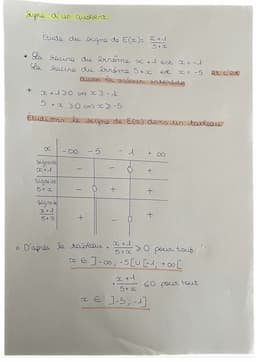 Signe d'un quotient
Etude du signe de E(x) = x+1/5+x
• La racine du binôme x+1 est x=-1
La racine du binôme 5+x est x=-5 et c'est
aussi la valeur interdite
* x+1≥0 ⟺ x≥-1
5+x≥0 ⟺ x≥-5
Etudions le signe de E(x) dans un tableau
x -∞ -5 -1 +∞
Signe de x+1 - - 0 +
Signe de 5+x - 0 + +
Signe de x+1/5+x + - 0 +
D'après le tableau x+1/5+x ≥0 pour tout
x ∈ ]-∞,-5[∪[-1,+∞[
x+1/5+x ≤0 pour tout
x ∈ ]-5;-1]